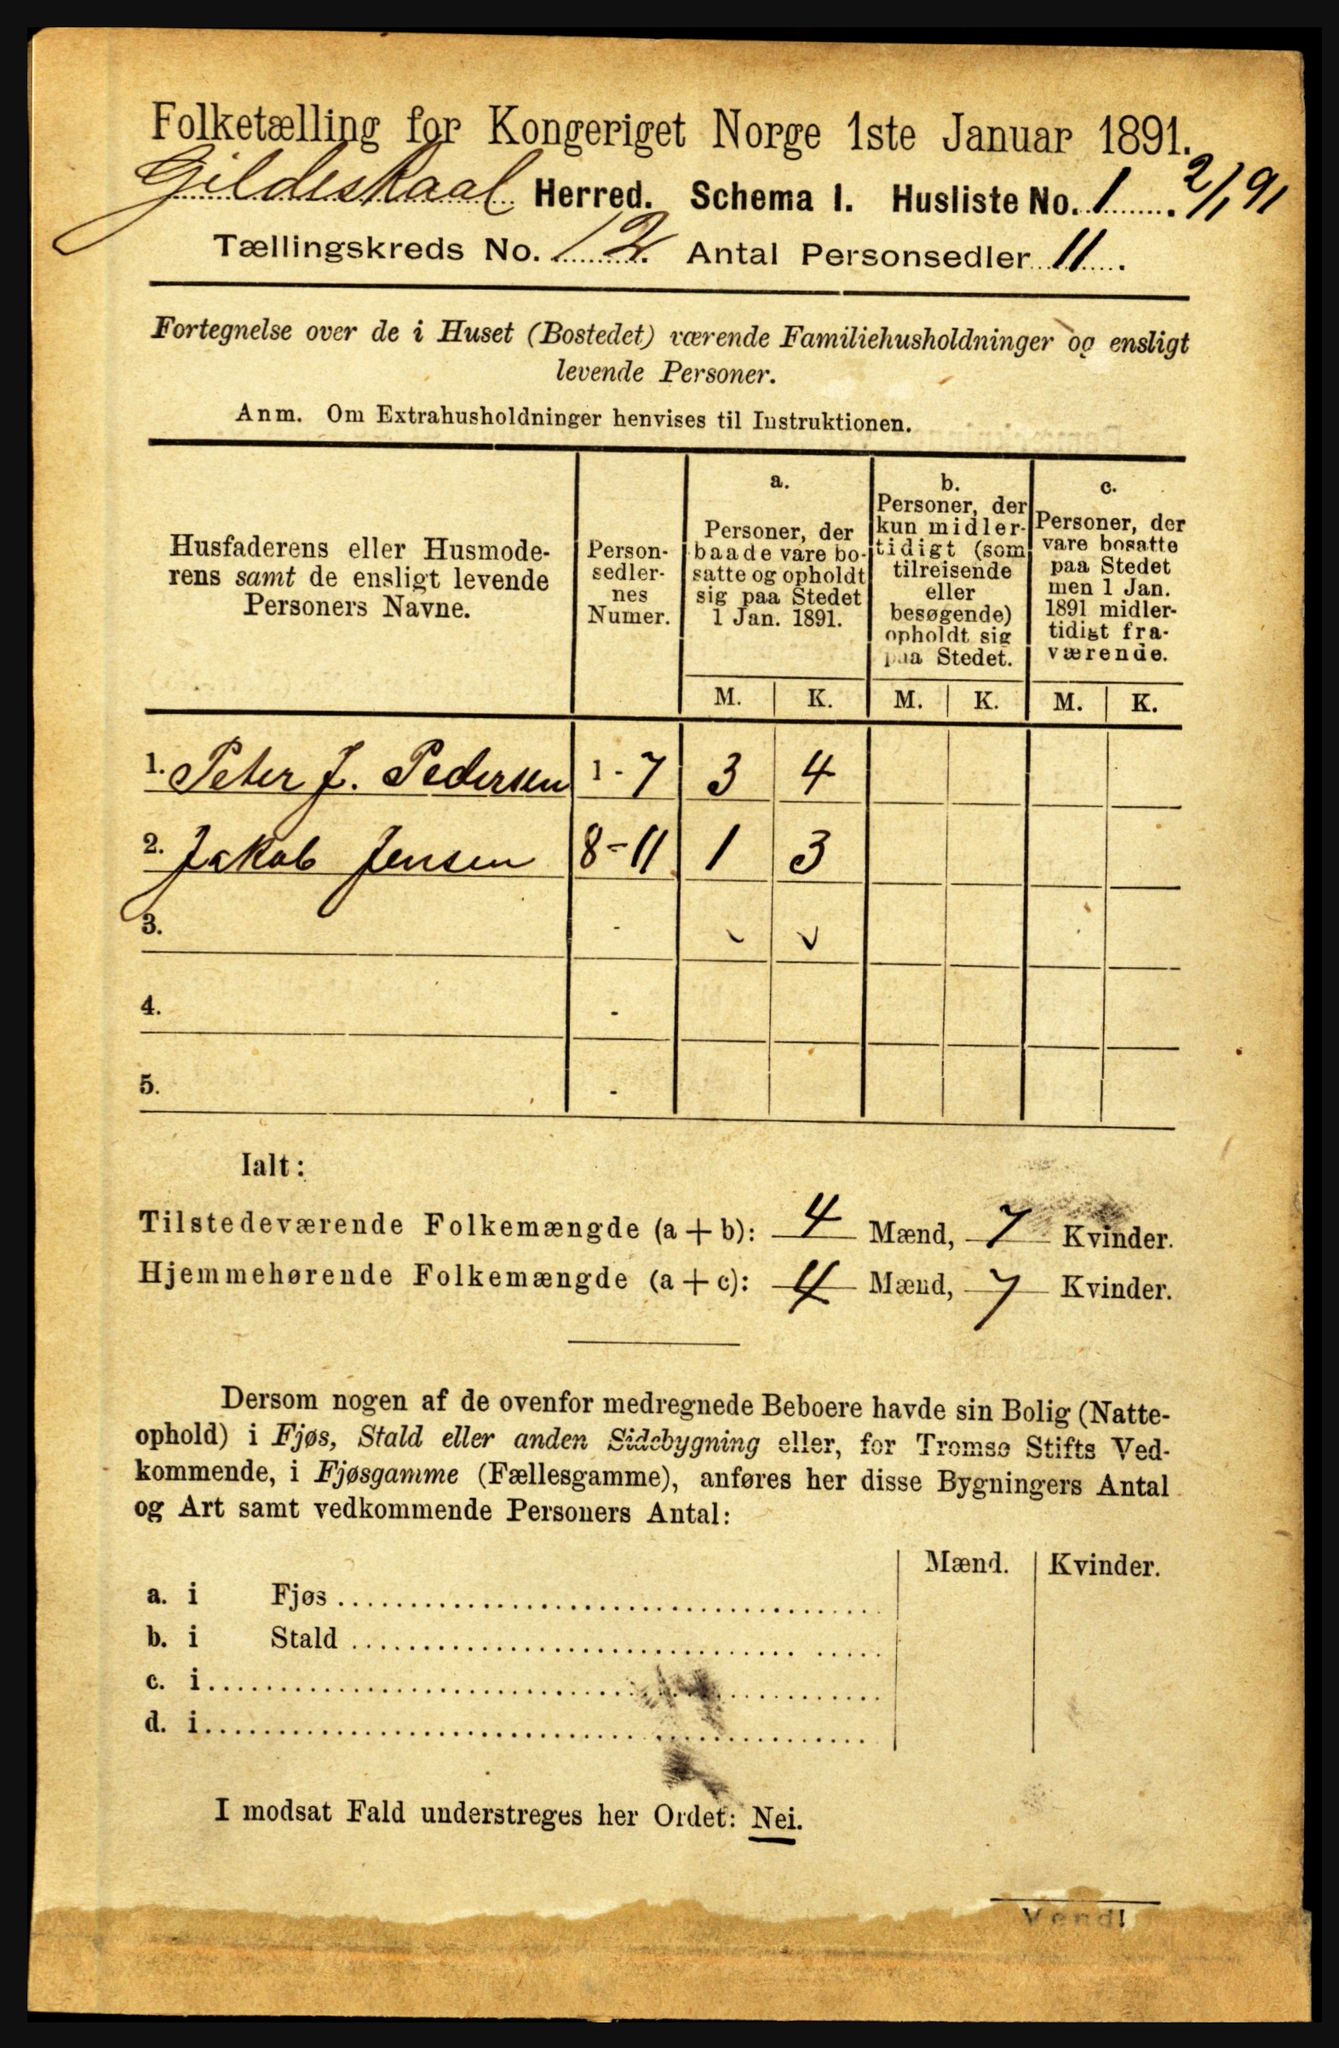 Folketælling for Kongeriget Norge 1ste Januar 1891.
Gildeskaal Herred. Schema I. Husliste No. 1. 2/1 91
Tællingskreds No. 12. Antal Personsedler 11.
Fortegnelse over de i Huset (Bostedet) værende Familiehusholdninger og ensligt
levende Personer.
Anm. Om Extrahusholdninger henvises til Instruktionen.
Husfaderens eller Husmode-
rens samt de ensligt levende
Personers Navne.
Person-
sedler-
nes
Numer.
a.
Personer, der
baade vare bo-
satte og opholdt
sig paa Stedet
1 Jan. 1891.
b.
Personer, der
kun midler-
tidigt (som
tilreisende
eller
besøgende)
opholdt sig
paa Stedet.
c.
Personer, der
vare bosatte
paa Stedet
men 1 Jan.
1891 midler-
tidigt fra-
værende.
M. K. M. K. M. K.
1. Peter J. Pedersen 1-7 3 4
2. Jakob Jensen 8-11 1 3
3. -
4. -
5. -
Ialt:
Tilstedeværende Folkemængde (a + b): 4 Mænd, 7 Kvinder.
Hjemmehørende Folkemængde (a + c): 4 Mænd, 7 Kvinder.
Dersom nogen af de ovenfor medregnede Beboere havde sin Bolig (Natte-
ophold) i Fjøs, Stald eller anden Sidebygning eller, for Tromsø Stifts Ved-
kommende, i Fjøsgamme (Fællesgamme), anføres her disse Bygningers Antal
og Art samt vedkommende Personers Antal:
Mænd. Kvinder.
a. i Fjøs
b. i Stald
c. i
d. i
I modsat Fald understreges her Ordet: Nei.
Vend!